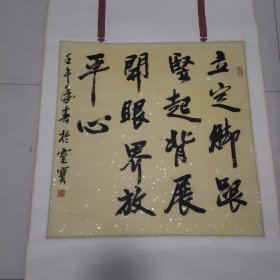 立定脚跟
竖起背展
開眼界放
平心
壬午年春於靈寳